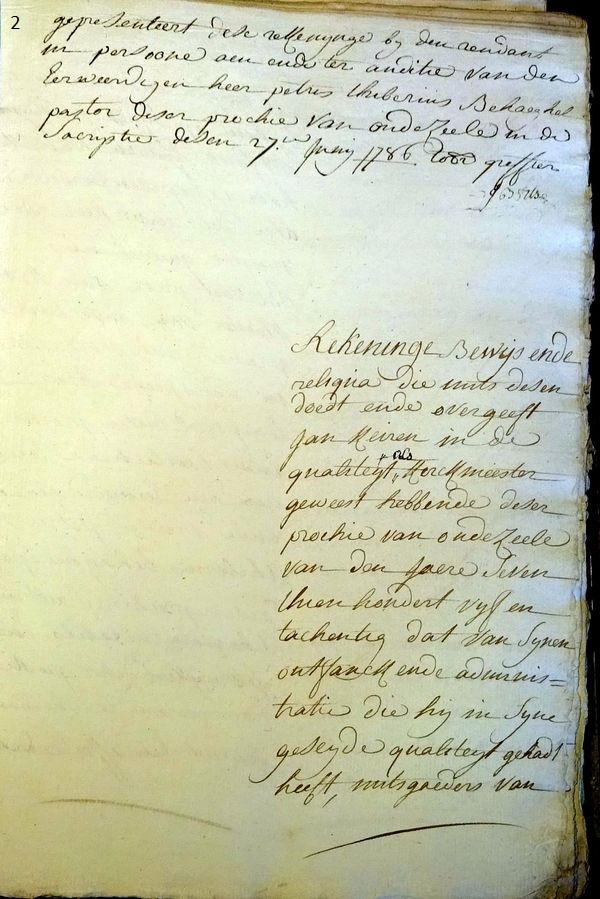 2
gepresenteert dese rekenynge by den rendant
in persoone aen ende ter auditie van den
Eerweerdigen heer petrus Behaeghel
pastor deser prochie van ondezeele in de
Sacristie desen 27.en Juny 1786. greffier
Rekeninge Bewijs ende
reliqua die mits desen
doedt ende overgeeft
Jan in de
qualiteyt als Kerckmeester
geweest hebbende deser
prochie van ondezeele
van den Jaere Seven
thien hondert vyf en
tachentig dat van Synen
ontfanck ende adminis=
tratie die hij in Syne
geseyde qualiteyt gehadt
heeft, mitsgaeders van